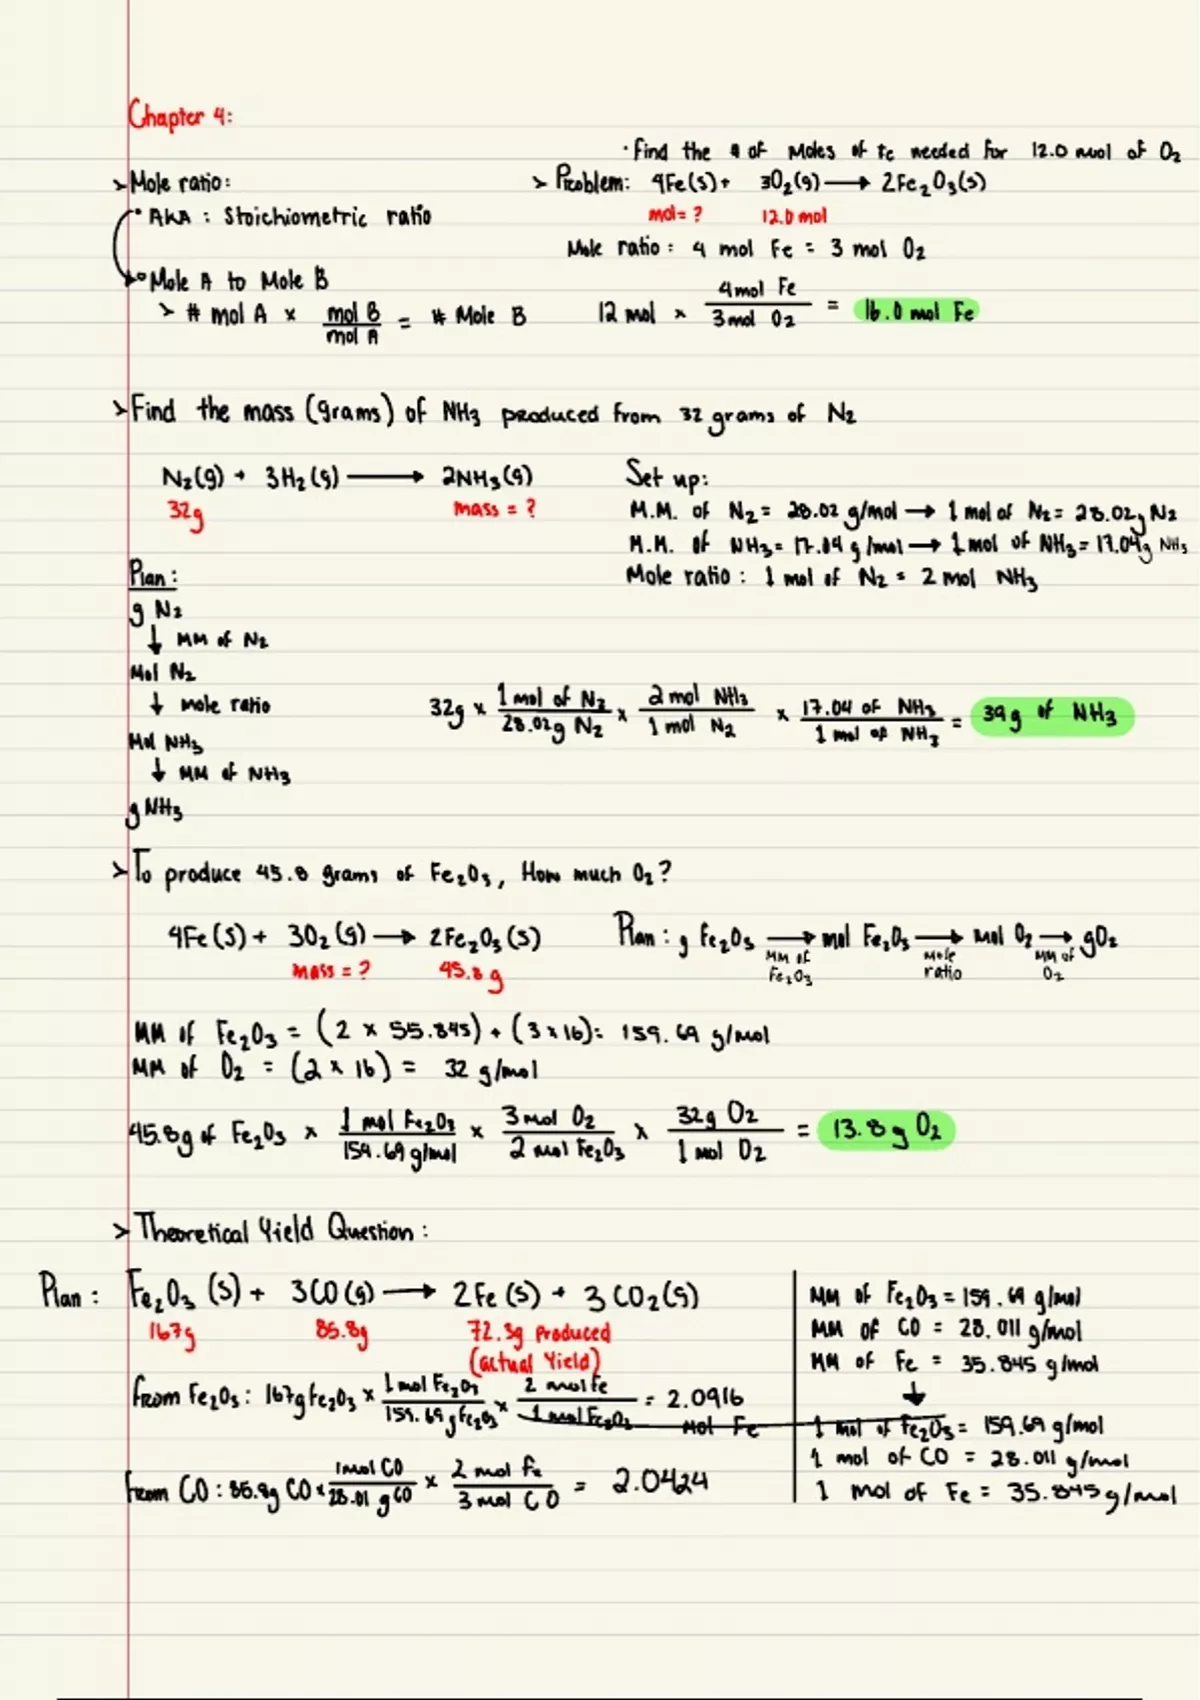 Chapter 4:
· Find the # of moles of Fe needed for 12.0 mol of O2
> Mole ratio:
> Problem: 4Fe(s) + 3O2(g) → 2Fe2O3(s)
mol = ? 12.0 mol
• AKA : Stoichiometric ratio
Mole ratio : 4 mol Fe = 3 mol O2
• Mole A to Mole B
> # mol A x mol B / mol A = # Mole B
12 mol x 4 mol Fe / 3 mol O2 = 16.0 mol Fe
> Find the mass (grams) of NH3 produced from 32 grams of N2
N2(g) + 3H2(g) → 2NH3(g)
32g mass = ?
Set up:
M.M. of N2 = 28.02 g/mol → 1 mol of N2 = 28.02g N2
M.M. of NH3 = 17.04 g/mol → 1 mol of NH3 = 17.04g NH3
Mole ratio : 1 mol of N2 = 2 mol NH3
Plan :
g N2
↓ MM of N2
Mol N2
↓ mole ratio
Mol NH3
↓ MM of NH3
g NH3
32g x 1 mol of N2 / 28.02g N2 x 2 mol NH3 / 1 mol N2 x 17.04 of NH3 / 1 mol of NH3 = 39g of NH3
> To produce 45.8 grams of Fe2O3, How much O2?
4Fe(s) + 3O2(g) → 2Fe2O3(s)
mass = ? 45.8 g
Plan : g Fe2O3 → mol Fe2O3 → mol O2 → gO2
MM of Fe2O3 Mole ratio MM of O2
MM of Fe2O3 = (2 x 55.845) + (3 x 16) = 159.69 g/mol
MM of O2 = (2 x 16) = 32 g/mol
45.8g of Fe2O3 x 1 mol Fe2O3 / 159.69 g/mol x 3 mol O2 / 2 mol Fe2O3 x 32g O2 / 1 mol O2 = 13.8 g O2
> Theoretical Yield Question :
Plan : Fe2O3 (s) + 3CO(g) → 2Fe(s) + 3CO2(g)
167g 85.8g 72.3g Produced
(actual Yield)
from Fe2O3 : 167g Fe2O3 x 1 mol Fe2O3 / 159.69 g Fe2O3 x 2 mol Fe / 1 mol Fe2O3 = 2.0916 Mol Fe
from CO : 85.8g CO x 1mol CO / 28.01 g CO x 2 mol Fe / 3 mol CO = 2.0424
MM of Fe2O3 = 159.69 g/mol
MM of CO = 28.011 g/mol
MM of Fe = 35.845 g/mol
↓
1 mol of Fe2O3 = 159.69 g/mol
1 mol of CO = 28.011 g/mol
1 mol of Fe = 35.845 g/mol